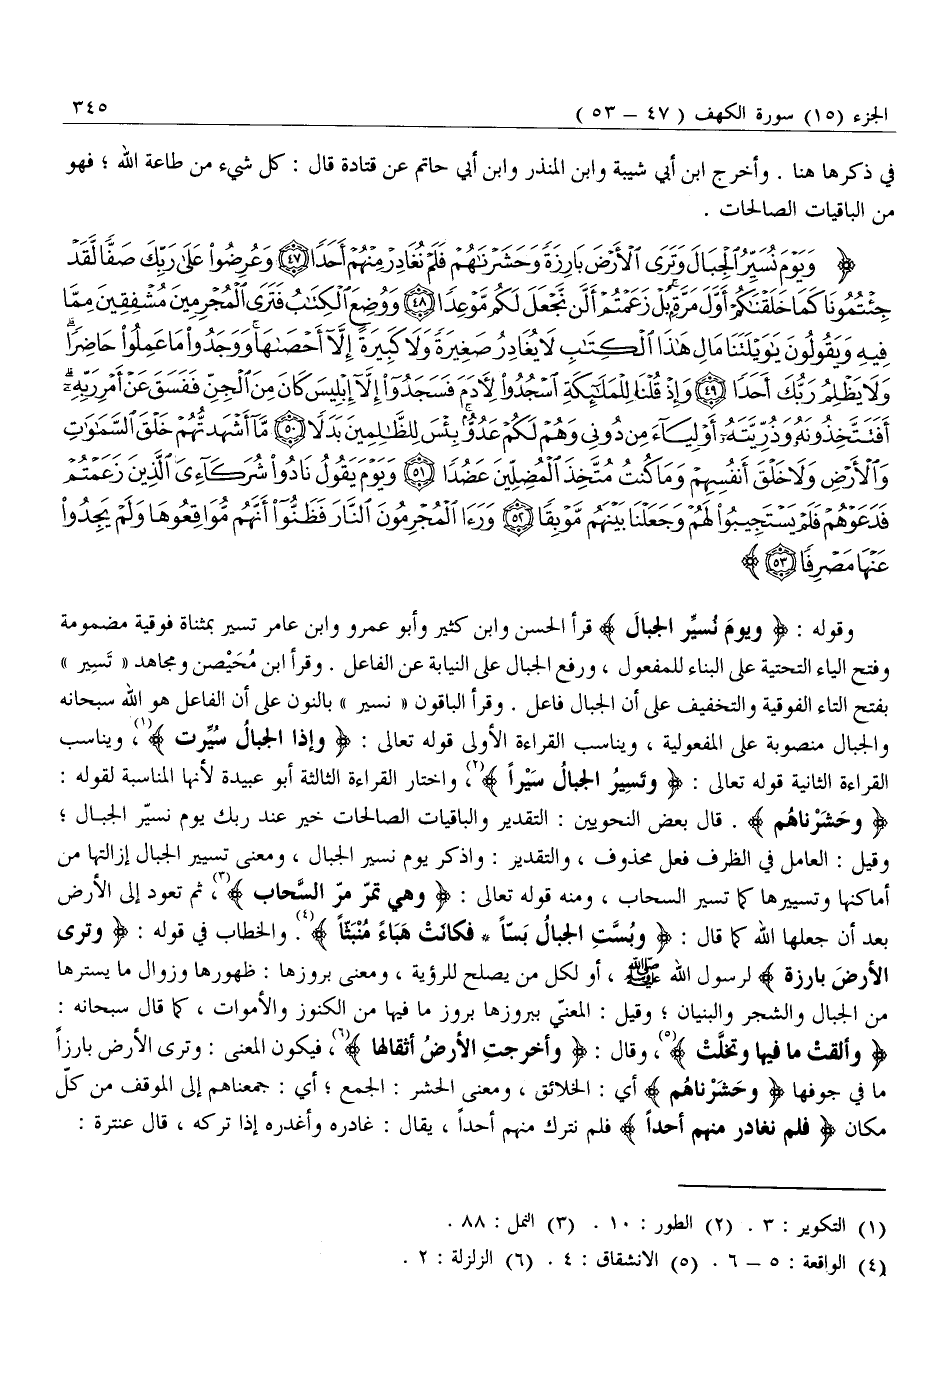 الجزء (١٥) سورة الكهف ( ٤٧ – ٥٣ ) ٣٤٥
في ذكرها هنا . وأخرج ابن أبي شيبة وابن المنذر وابن أبي حاتم عن قتادة قال : كل شيء من طاعة الله ؛ فهو
من الباقيات الصالحات .
﴿ وَيَوْمَ نُسَيِّرُ ٱلْجِبَالَ وَتَرَى ٱلْأَرْضَ بَارِزَةً وَحَشَرْنَاهُمْ فَلَمْ نُغَادِرْ مِنْهُمْ أَحَدًا ﴿٤٧﴾ وَعُرِضُوا۟ عَلَىٰ رَبِّكَ صَفًّا لَّقَدْ
جِئْتُمُونَا كَمَا خَلَقْنَاكُمْ أَوَّلَ مَرَّةٍۭ بَلْ زَعَمْتُمْ أَلَّن نَّجْعَلَ لَكُم مَّوْعِدًا ﴿٤٨﴾ وَوُضِعَ ٱلْكِتَٰبُ فَتَرَى ٱلْمُجْرِمِينَ مُشْفِقِينَ مِمَّا
فِيهِ وَيَقُولُونَ يَٰوَيْلَتَنَا مَالِ هَٰذَا ٱلْكِتَٰبِ لَا يُغَادِرُ صَغِيرَةً وَلَا كَبِيرَةً إِلَّآ أَحْصَىٰهَا وَوَجَدُوا۟ مَا عَمِلُوا۟ حَاضِرًا
وَلَا يَظْلِمُ رَبُّكَ أَحَدًا ﴿٤٩﴾ وَإِذْ قُلْنَا لِلْمَلَٰٓئِكَةِ ٱسْجُدُوا۟ لِءَادَمَ فَسَجَدُوٓا۟ إِلَّآ إِبْلِيسَ كَانَ مِنَ ٱلْجِنِّ فَفَسَقَ عَنْ أَمْرِ رَبِّهِۦٓ
أَفَتَتَّخِذُونَهُۥ وَذُرِّيَّتَهُۥٓ أَوْلِيَآءَ مِن دُونِى وَهُمْ لَكُمْ عَدُوٌّۢ بِئْسَ لِلظَّٰلِمِينَ بَدَلًا ﴿٥٠﴾ مَّآ أَشْهَدتُّهُمْ خَلْقَ ٱلسَّمَٰوَٰتِ
وَٱلْأَرْضِ وَلَا خَلْقَ أَنفُسِهِمْ وَمَا كُنتُ مُتَّخِذَ ٱلْمُضِلِّينَ عَضُدًا ﴿٥١﴾ وَيَوْمَ يَقُولُ نَادُوا۟ شُرَكَآءِىَ ٱلَّذِينَ زَعَمْتُمْ
فَدَعَوْهُمْ فَلَمْ يَسْتَجِيبُوا۟ لَهُمْ وَجَعَلْنَا بَيْنَهُم مَّوْبِقًا ﴿٥٢﴾ وَرَءَا ٱلْمُجْرِمُونَ ٱلنَّارَ فَظَنُّوٓا۟ أَنَّهُم مُّوَاقِعُوهَا وَلَمْ يَجِدُوا۟
عَنْهَا مَصْرِفًا ﴿٥٣﴾ ﴾
وقوله : ﴿ ويومَ نُسيِّر الجبالَ ﴾ قرأ الحسن وابن كثير وأبو عمرو وابن عامر تسير بمثناة فوقية مضمومة
وفتح الياء التحتية على البناء للمفعول ، ورفع الجبال على النيابة عن الفاعل . وقرأ ابن مُحَيْصن ومجاهد « تَسِير »
بفتح التاء الفوقية والتخفيف على أن الجبال فاعل . وقرأ الباقون « نسير » بالنون على أن الفاعل هو الله سبحانه
والجبال منصوبة على المفعولية ، ويناسب القراءة الأولى قوله تعالى : ﴿ وإذا الجبالُ سُيِّرت ﴾(١)، ويناسب
القراءة الثانية قوله تعالى : ﴿ وتَسِيرُ الجبالُ سَيْراً ﴾(٢)، واختار القراءة الثالثة أبو عبيدة لأنها المناسبة لقوله :
﴿ وحَشَرْناهُم ﴾ . قال بعض النحويين : التقدير والباقيات الصالحات خير عند ربك يوم نسيّر الجبال ؛
وقيل : العامل في الظرف فعل محذوف ، والتقدير : واذكر يوم نسير الجبال ، ومعنى تسيير الجبال إزالتها من
أماكنها وتسييرها كما تسير السحاب ، ومنه قوله تعالى : ﴿ وهي تمرّ مرّ السَّحاب ﴾(٣)، ثم تعود إلى الأرض
بعد أن جعلها الله كما قال : ﴿ وبُسَّتِ الجبالُ بَسّاً * فكانَتْ هَبَاءً مُنْبَثّاً ﴾(٤). والخطاب في قوله : ﴿ وترى
الأرضَ بارزة ﴾ لرسول الله ﷺ ، أو لكل من يصلح للرؤية ، ومعنى بروزها : ظهورها وزوال ما يسترها
من الجبال والشجر والبنيان ؛ وقيل : المعنيّ ببروزها بروز ما فيها من الكنوز والأموات ، كما قال سبحانه :
﴿ وألقتْ ما فيها وتخلَّتْ ﴾(٥)، وقال : ﴿ وأخرجتِ الأرضُ أثقالها ﴾(٦)، فيكون المعنى : وترى الأرض بارزاً
ما في جوفها ﴿ وحَشَرْناهُم ﴾ أي : الخلائق ، ومعنى الحشر : الجمع ؛ أي : جمعناهم إلى الموقف من كلّ
مكان ﴿ فلم نغادر منهم أحداً ﴾ فلم نترك منهم أحداً ، يقال : غادره وأغدره إذا تركه ، قال عنترة :
(١) التكوير : ٣ . (٢) الطور : ١٠ . (٣) النمل : ٨٨ .
(٤) الواقعة : ٥ – ٦ . (٥) الانشقاق : ٤ . (٦) الزلزلة : ٢ .